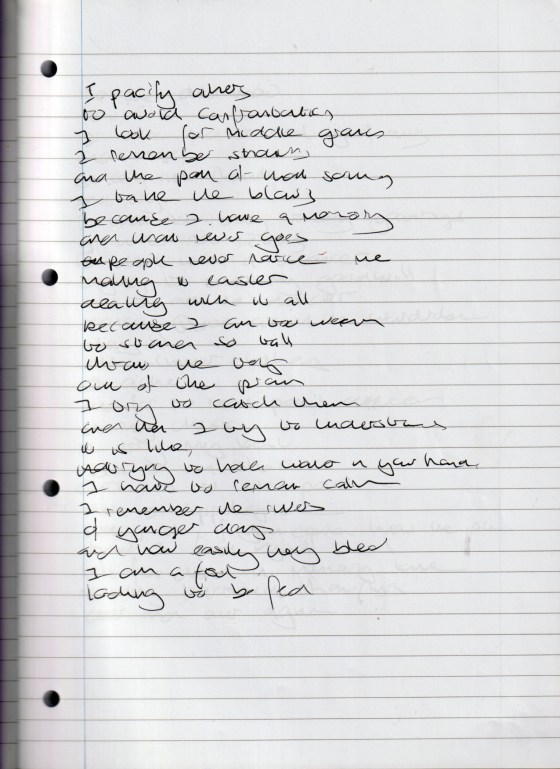 I pacify others
to avoid confrontation
I look for middle ground
I remember
and the pain of that
I take the blows
because I have a memory
and that never goes
people never notice me
making it easier
dealing with it all
because I am too weak
to stand so tall
throw the toys
out of the pram
I try to catch them
and then I try to understand
it is like,
trying to hold water in your hand
I have to remain calm
I remember the rules
of younger days
and how easily they bled
I am a fool
looking to be fed